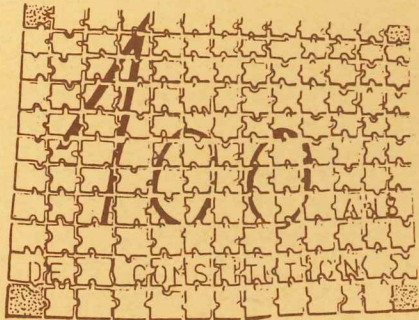 100
ANS
DE CONSTITUTION